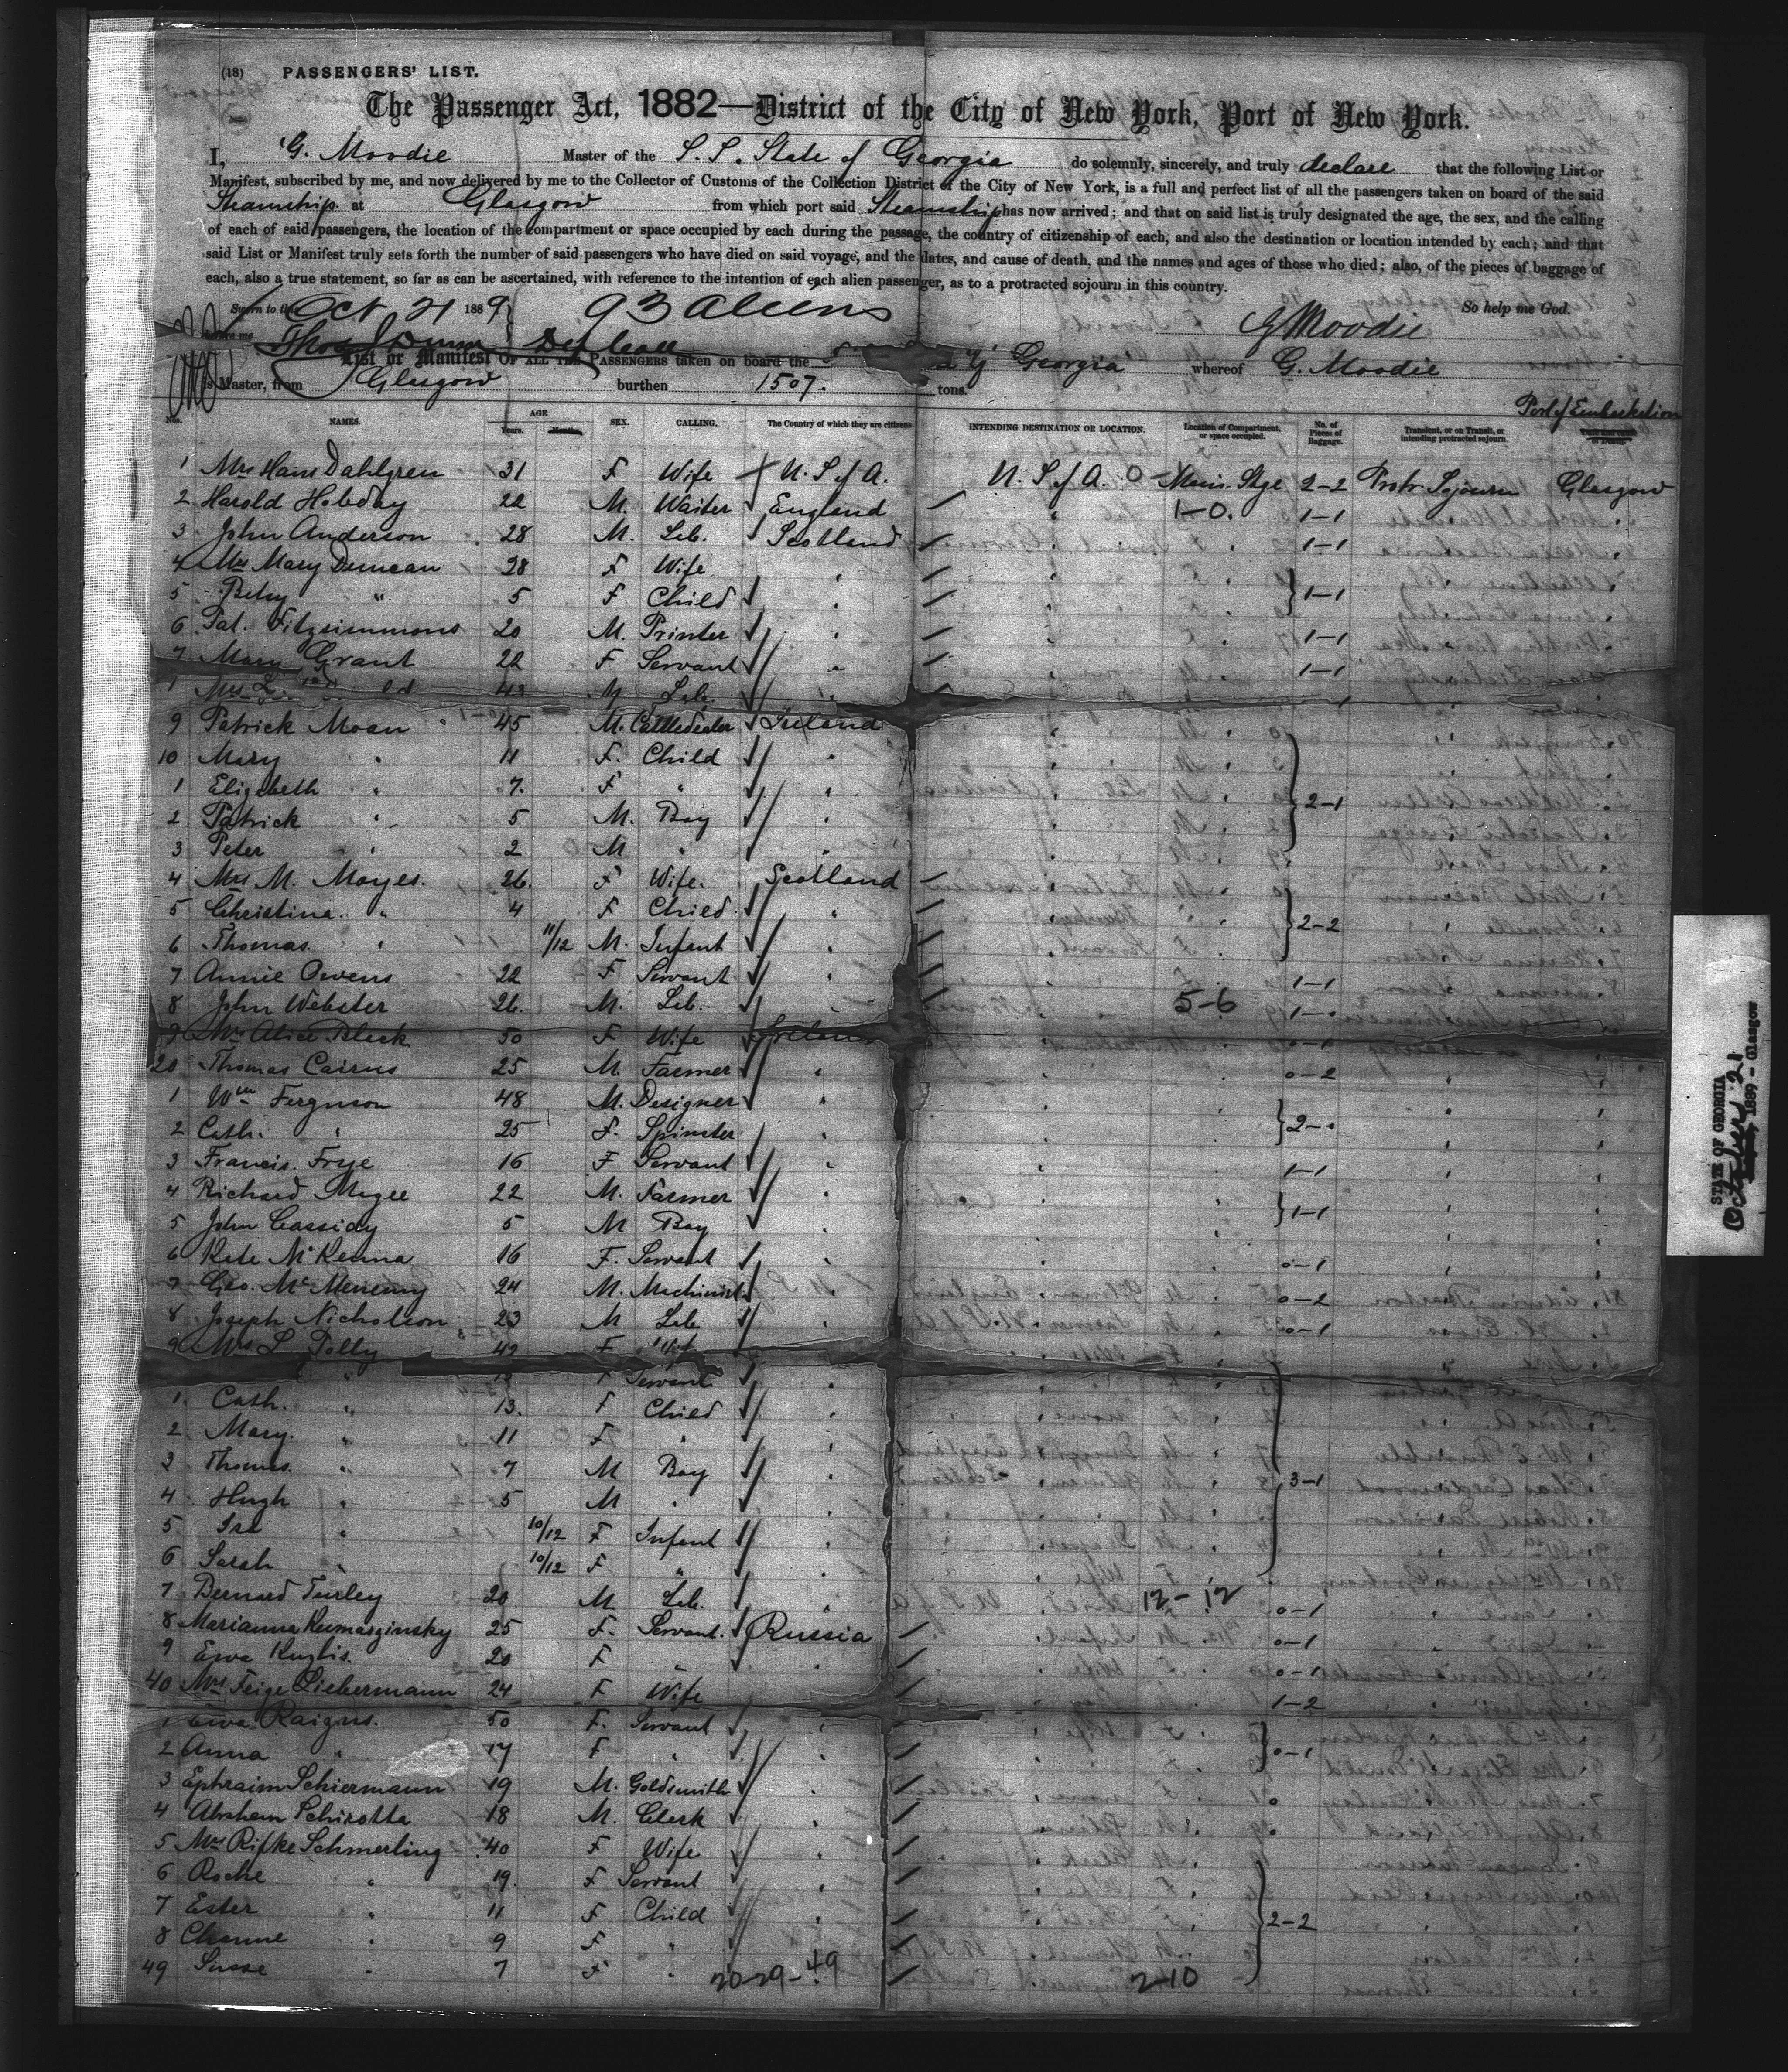 (18) PASSENGERS' LIST.
The Passenger Act, 1882—District of the City of New York, Port of New York.
I, G. Moodie Master of the S.S. State of Georgia do solemnly, sincerely, and truly declare that the following List or
Manifest, subscribed by me, and now delivered by me to the Collector of Customs of the Collection District of the City of New York, is a full and perfect list of all the passengers taken on board of the said
Steamship at Glasgow from which port said Steamship has now arrived; and that on said list is truly designated the age, the sex, and the calling
of each of said passengers, the location of the compartment or space occupied by each during the passage, the country of citizenship of each, and also the destination or location intended by each; and that
said List or Manifest truly sets forth the number of said passengers who have died on said voyage, and the dates, and cause of death, and the names and ages of those who died; also, of the pieces of baggage of
each, also a true statement, so far as can be ascertained, with reference to the intention of each alien passenger, as to a protracted sojourn in this country.
Sworn to this Oct 21 1889 93 aliens So help me God.
G Moodie
List or Manifest OF ALL THE PASSENGERS taken on board the Georgia whereof G. Moodie
is Master, from Glasgow burthen 1507. tons.
Port of Embarkation
Nos. NAMES. AGE Years. Months. SEX. CALLING. The Country of which they are citizens INTENDING DESTINATION OR LOCATION. Location of Compartment, or space occupied. No. of Pieces of Baggage. Transient, or on Transit, or intending protracted sojourn.
1 Mrs Hans Dahlgren 31 F Wife U. S of A. U. S of A. O Main Stge 2-2 Protr. Sojourn Glasgow
2 Harold Hobday 22 M. Waiter England " 1-0. 1-1
3 John Anderson 28 M. Lab. Scotland " 1-1
4 Mrs Mary Duncan 28 F Wife "
5 Betsy " 5 F Child " 1-1
6 Pat. Fitzsimmons 20 M. Printer " 1-1
7 Mary Grant 22 F Servant " 1-1
43 M Lab. "
9 Patrick Moan 45 M. Cattledealer Ireland
10 Mary " 11 F. Child "
1 Elizabeth " 7. F " "
2 Patrick " 5 M. Boy " 2-1
3 Peter " 2 M " "
4 Mrs M. Moyes. 26. F Wife. Scotland
5 Christina. " 4 F Child "
6 Thomas. " 11/12 M. Infant " 2-2
7 Annie Owens 22 F Servant " 1-1
8 John Webster 26. M. Lab. " 5-6
9 Mrs Alice Black 50 F Wife Ireland
20 Thomas Cairns 25 M. Farmer " 0-2
1 Wm Ferguson 48 M. Designer "
2 Cath. " 25 F. Spinster "
3 Francis. Frye 16 F Servant " 1-1
4 Richard Magee 22 M. Farmer "
5 John Cassidy 5 M Boy " 1-1
6 Kate McKenna 16 F. Servant " 0-1
7 Geo. McMenemy 24 M. Machinist " 0-2
8 Joseph Nicholson 23 M Lab " 0-1
9 Mrs L Tolly 42 F Wife
" F Servant "
1. Cath. " 13. F Child "
2 Mary. " 11 F " "
3 Thomas. " 7 M Boy "
4 Hugh " 5 M " " 3-1
5 " 10/12 F Infant "
6 Sarah " 10/12 F " "
7 Bernard Turley 20 M Lab. " 12-12 0-1
8 Marianna 25 F. Servant. Russia 0-1
9 Ewa 20 F " " 0-1
40 Mrs Feige Liebermann 24 F Wife 1-2
1 Ewa Raigus. 50 F. Servant "
2 Anna " 17 F " " 0-1
3 Ephraim Schiermann 19 M. Goldsmith "
4 Abraham Schirotta 18 M. Clerk "
5 Mrs Rifke Schmerling 40 F Wife "
6 Roche " 19. F Servant "
7 Ester " 11 F Child " 2-2
8 Channe " 9 F " "
49 Susse " 7 F " 20-29-49 2-10
STATE OF GEORGIA
October 21
1889 - Glasgow